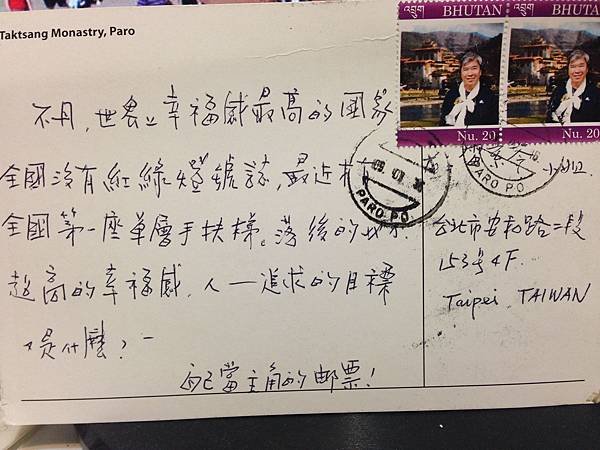 Taktsang Monastry, Paro
འབྲུག BHUTAN འབྲུག BHUTAN
Nu. 20 Nu. 20
PARO P.O. PARO P.O.
不丹，世界上幸福感最高的國家
全國沒有紅綠燈號誌，最近才有
全國第一座單層手扶梯。落後的
超高的幸福感，人一追求的目標
是什麼？
自己當主角的邮票！
小姐
台北市安和路二段
153號4F.
Taipei, TAIWAN